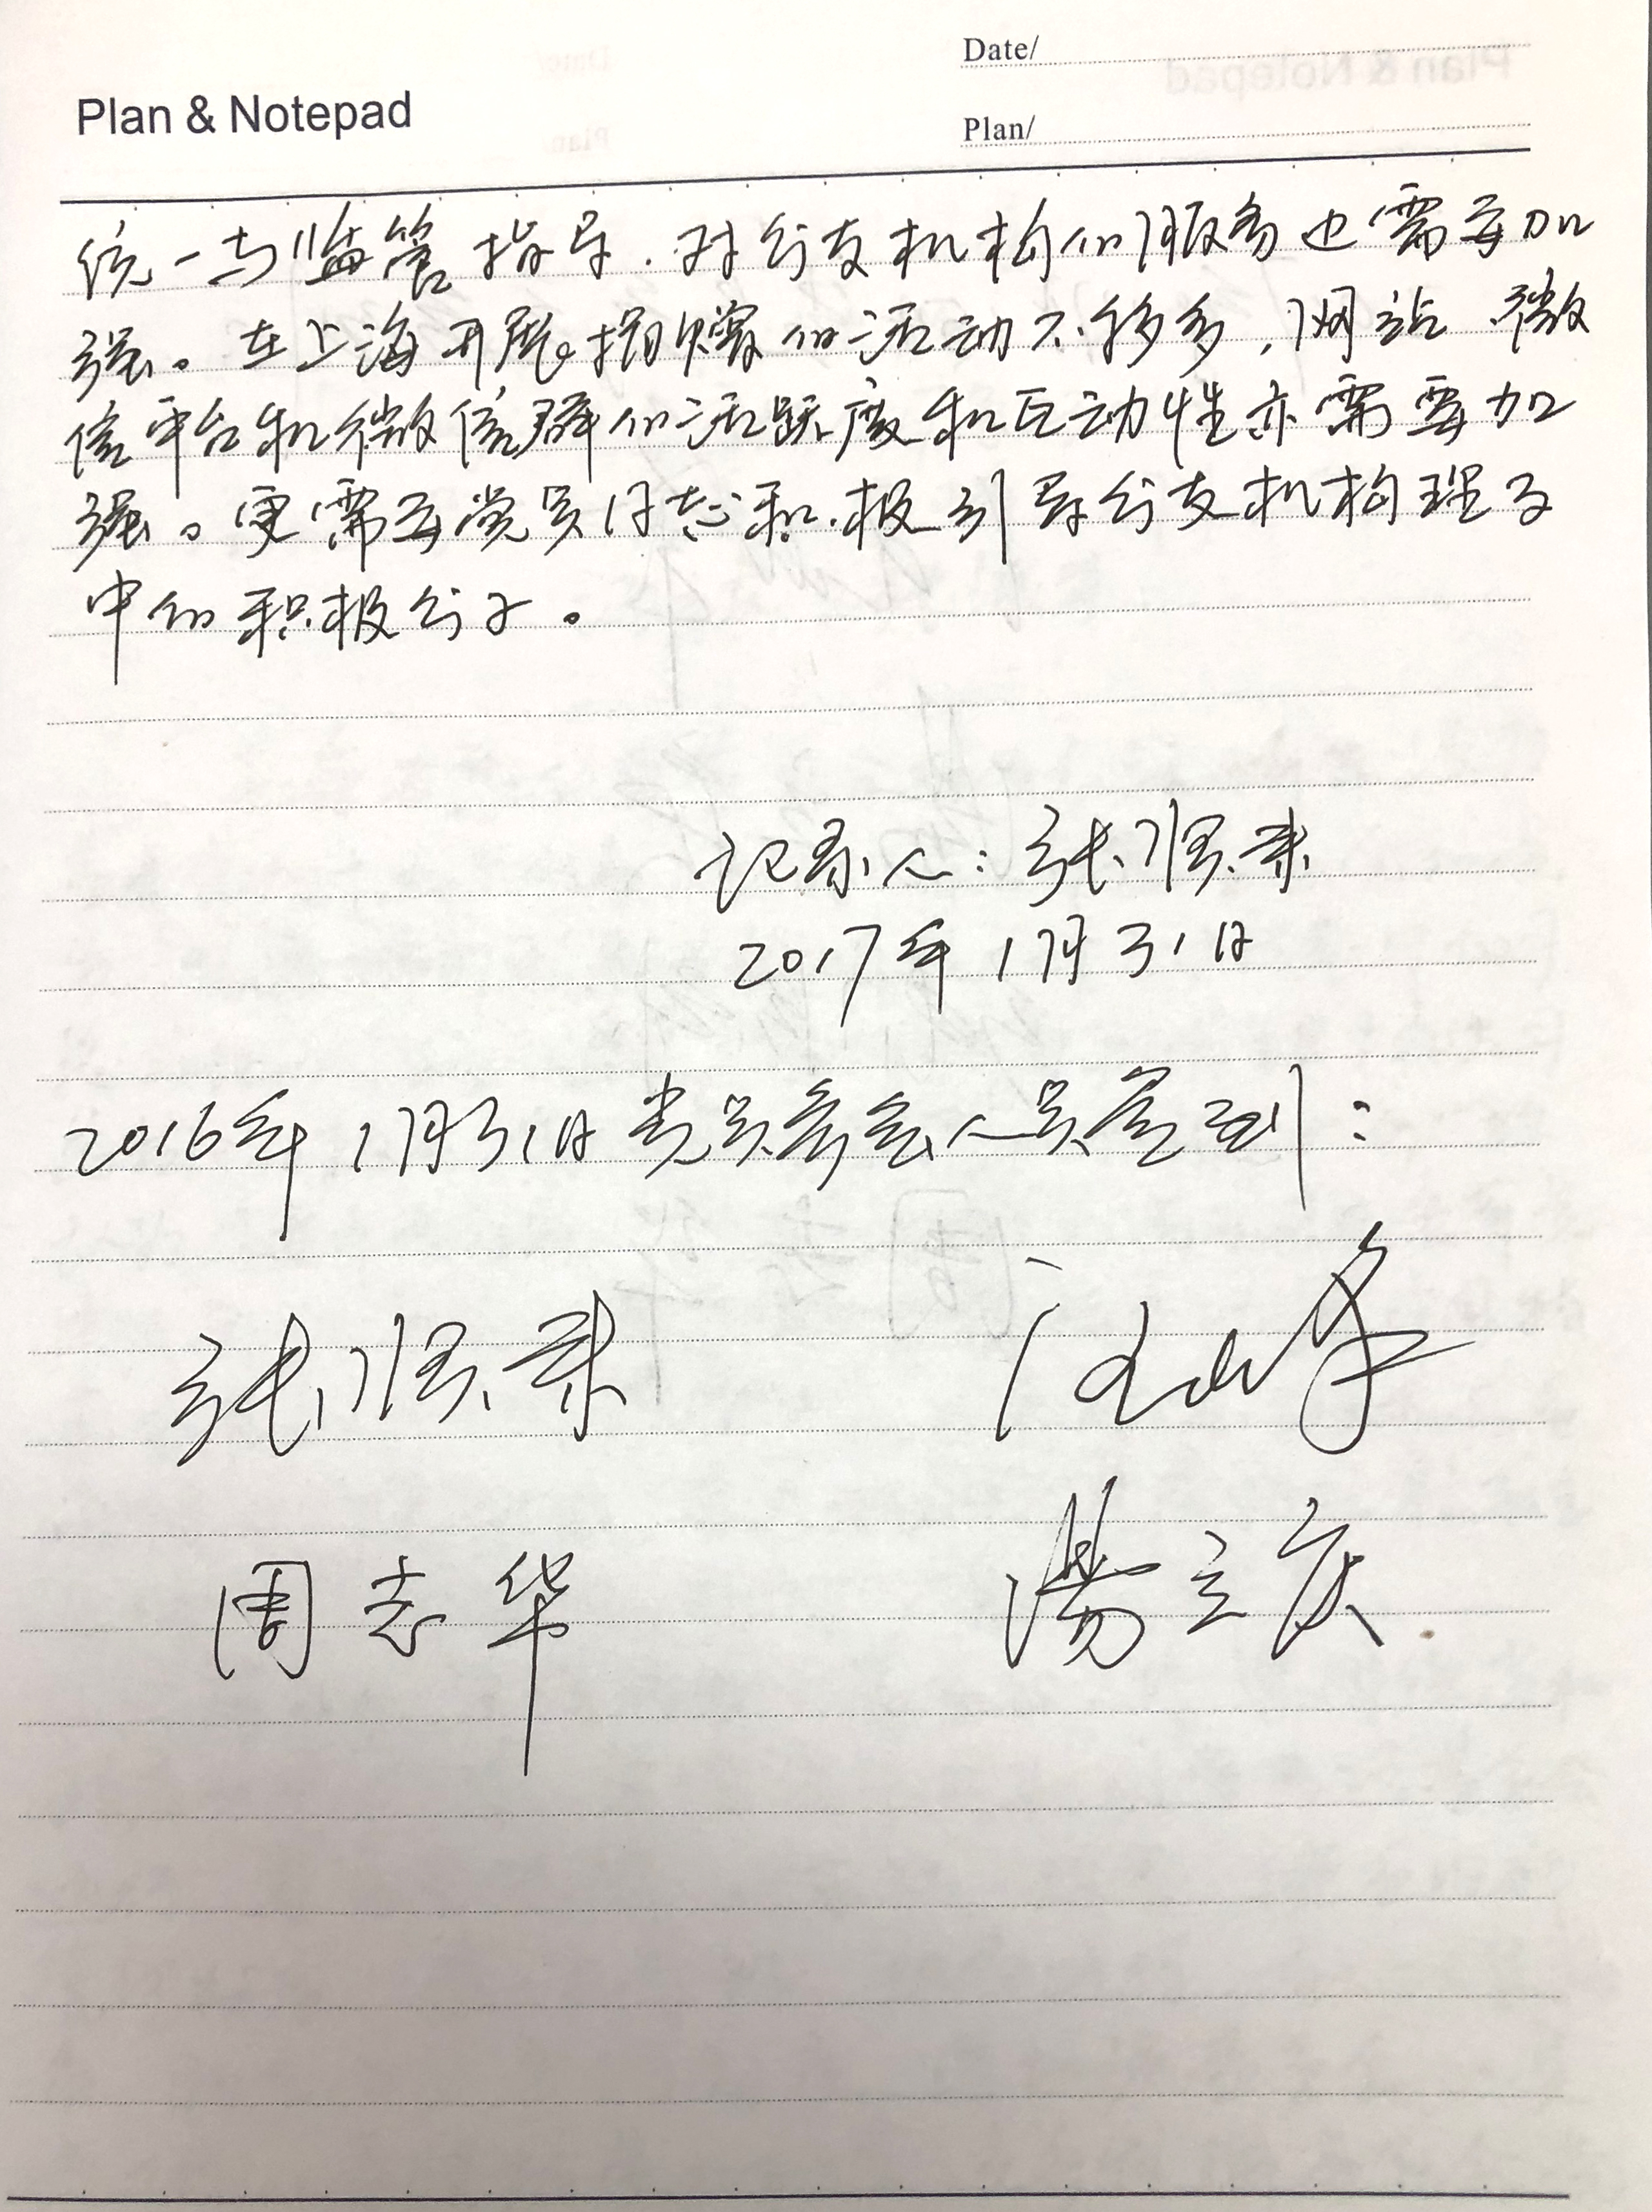 Date/
Plan & Notepad
Plan/
统一与监管指导.对分支机构的服务也需要加
强。在上海开展捐赠的活动不够多,网站、微
信平台和微信群的活跃度和互动性亦需要加
强。更需要党员同志积极引导分支机构理事
中的积极分子。
记录人:张顺荣
2017年1月31日
2016年1月31日党员参会人员签到:
张顺荣
汪峰
周志华
汤立庆